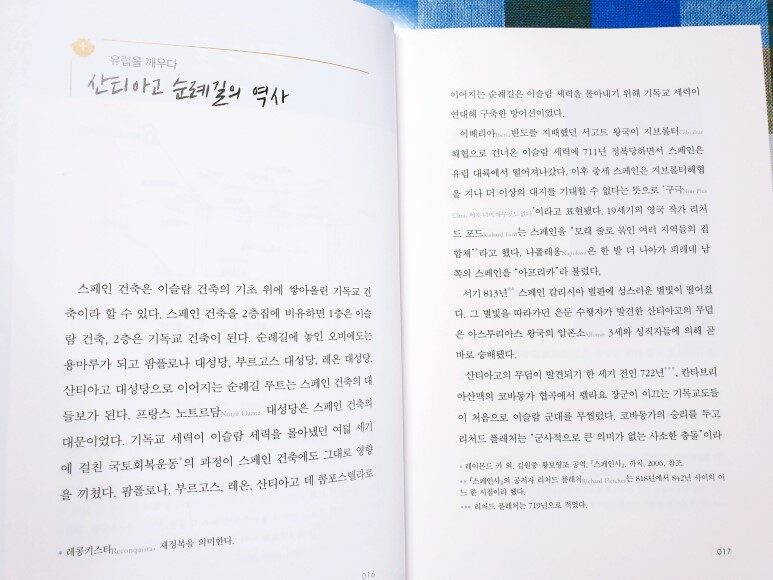 유럽을 깨우다
산티아고 순례길의 역사
스페인 건축은 이슬람 건축의 기초 위에 쌓아올린 기독교 건
축이라 할 수 있다. 스페인 건축을 2층집에 비유하면 1층은 이슬
람 건축, 2층은 기독교 건축이 된다. 순례길에 놓인 오비에도는
용마루가 되고 팜플로나 대성당, 부르고스 대성당, 레온 대성당,
산티아고 대성당으로 이어지는 순례길 루트는 스페인 건축의 대
들보가 된다. 프랑스 노트르담Notre Dame 대성당은 스페인 건축의
대문이었다. 기독교 세력이 이슬람 세력을 몰아냈던 여덟 세기
에 걸친 국토회복운동*의 과정이 스페인 건축에도 그대로 영향
을 끼쳤다. 팜플로나, 부르고스, 레온, 산티아고 데 콤포스텔라로
* 레콩키스타Reconquista. 재정복을 의미한다.
016
이어지는 순례길은 이슬람 세력을 몰아내기 위해 기독교 세력이
연대해 구축한 방어선이었다.
이베리아Iberia반도를 지배했던 서고트 왕국이 지브롤터Gibraltar
해협으로 건너온 이슬람 세력에 711년 정복당하면서 스페인은
유럽 대륙에서 떨어져나갔다. 이후 중세 스페인은 지브롤터해협
을 지나 더 이상의 대지를 기대할 수 없다는 뜻으로 '구극Non Plus
Ultra, 이것 너머 아무것도 없다'이라고 표현됐다. 19세기의 영국 작가 리처
드 포드Richard Ford는 스페인을 "모래 줄로 묶인 여러 지역들의 집
합체*"라고 했다. 나폴레옹Napoleon은 한 발 더 나아가 피레네 남
쪽의 스페인을 "아프리카"라 불렀다.
서기 813년** 스페인 갈리시아 벌판에 성스러운 별빛이 떨어졌
다. 그 별빛을 따라가던 은둔 수행자가 발견한 산티아고의 무덤
은 아스투리아스 왕국의 알폰소Alfonso 3세와 성직자들에 의해 곧
바로 숭배됐다.
산티아고의 무덤이 발견되기 한 세기 전인 722년***, 칸타브리
아산맥의 코바동가 협곡에서 펠라요 장군이 이끄는 기독교도들
이 처음으로 이슬람 군대를 무찔렀다. 코바동가의 승리를 두고
리처드 플레처는 "군사적으로 큰 의미가 없는 사소한 충돌"이라
* 레이몬드 카 외, 김원중·황보영조 공역, 『스페인사』, 까치, 2006, 참조.
** 『스페인사』의 공저자 리처드 플레처Richard Fletcher는 818년에서 842년 사이의 어
느 한 시점이라 했다.
*** 리처드 플레처는 719년으로 적었다.
017